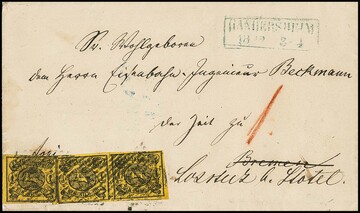 GANDERSHEIM
Sr. Wohlgeboren
dem Herrn Eisenbahn-Ingenieur Beckmann
der Zeit zu
Bremen
b. Stotel.
frei